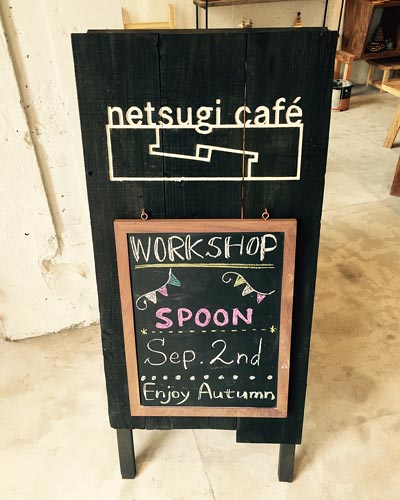 netsugi café
WORKSHOP
SPOON
Sep. 2nd
Enjoy Autumn